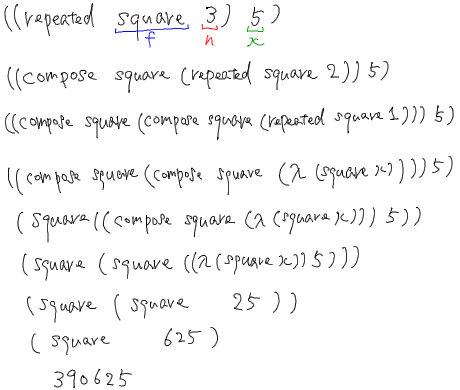 ((repeated square 3) 5)
f n x
((compose square (repeated square 2)) 5)
((compose square (compose square (repeated square 1))) 5)
((compose square (compose square (λ (square x)))) 5)
(square ((compose square (λ (square x))) 5))
(square (square ((λ (square x)) 5)))
(square (square 25))
(square 625)
390625